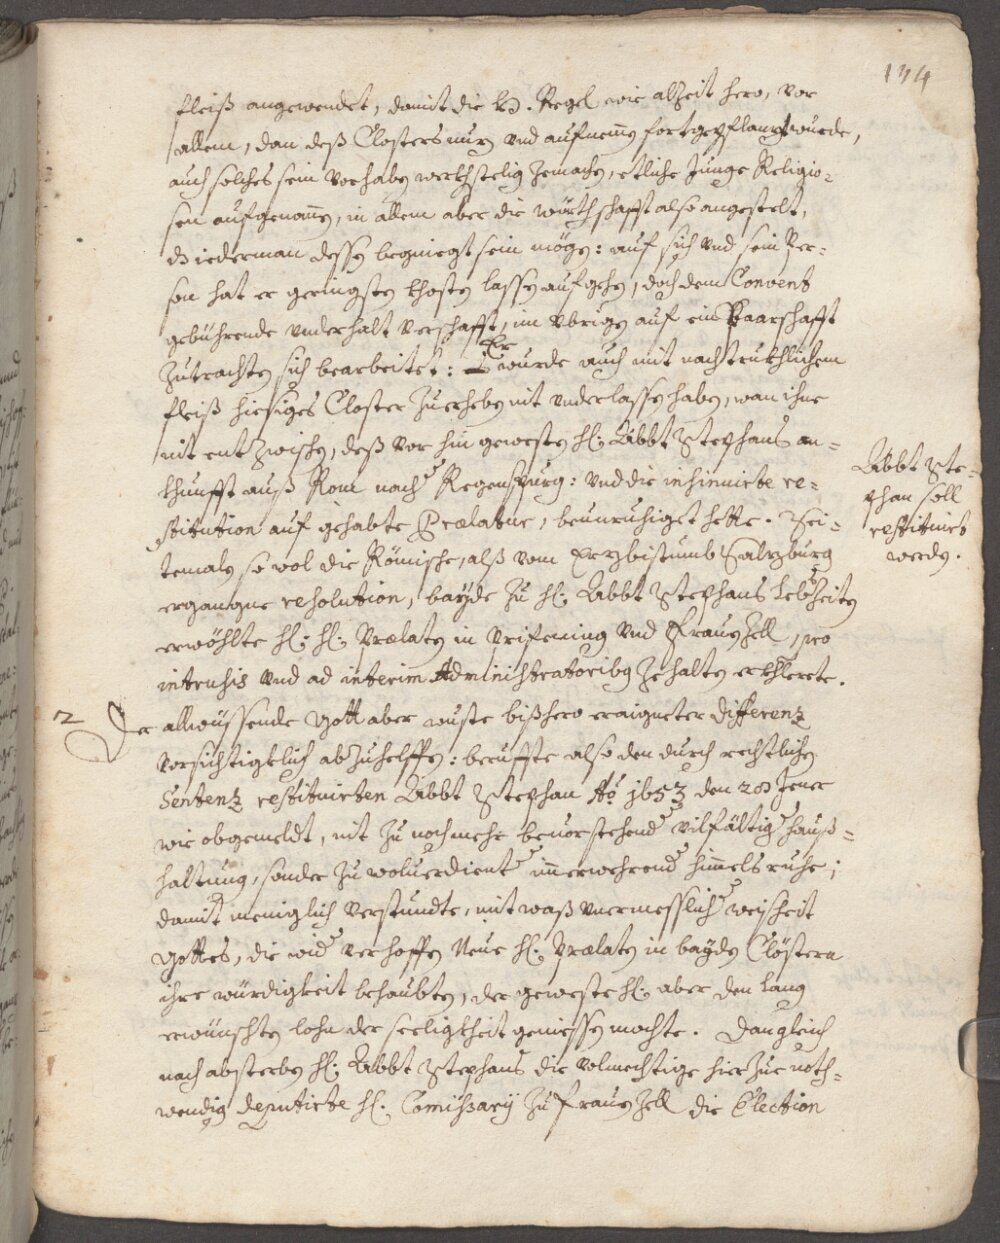 134
fleiß angewendet, damit die H. Regel wie alzeit hero, vor
allem, dan deß Closters nuz vnd aufnemen fortgepflanzt wurde,
auch solches sein vorhaben werkhstelig zemachen, etliche Junge Religio-
sen aufgenomen, in allem aber die würthschafft also angestelt,
dz iederman dessen begniegt sein mögen: auf sich vnd sein Per-
son hat er geringsten khosten lassen aufgehen, doch dem Convent
gebührende vnderhalt verschafft, im vbrigen auf ein Paarschafft
zutrachten sich bearbeitet: Er wurde auch mit nachtrukhlichem
fleiß hiesiges Closter zuerheben nit vnderlassen haben, wan ihne
nit entzwischen, deß vor hin gewesten hl: Abbt Stephans an-
khunfft auß Rom nach Regenspurg: vnd die insinuirte re-
stitution auf gehabte Prælatur, beunruhiget hette. Sei-
temalen so wol die Römische, alß vom Erzbistumb Salzburg
ergangne resolution, bayde zu hl: Abbt Stephans Lebzeiten
erwöhlte hl: hl: Prælaten in Prifening vnd Frauenzell, pro
intrusis vnd ad interim Administratoribus zehalten erkhlerete.
Abbt Ste-
phan soll
restituirt
werden.
2 Der allwissende Gott aber wuste bißhero eraigneter differenz
vorsichtigklich abzuhelffen: beruffte also den durch rechtlichen
Sentenz restituirten Abbt Stephan Ao 1653 den 20 Jener
wie obgemeldt, nit zu noch mehr beuorstehender vilfältiger hauß-
haltung, sonder zu woluerdienter imerwehrender himmels ruhe;
damit meniglich verstundte, mit waß vnermesslicher weisheit
Gottes, die wider verhoffen Neue hl: Prælaten in bayden Clöstern
ihre würdigkeit behaubten, der geweste hl: aber den lang
erwünschten lohn der seeligkheit geniessen mochte. Dan gleich
nach absterben hl: Abbt Stephans die volmechtige hierzue noth-
wendig deputirte hl: Comissarij zu Frauenzell die Election